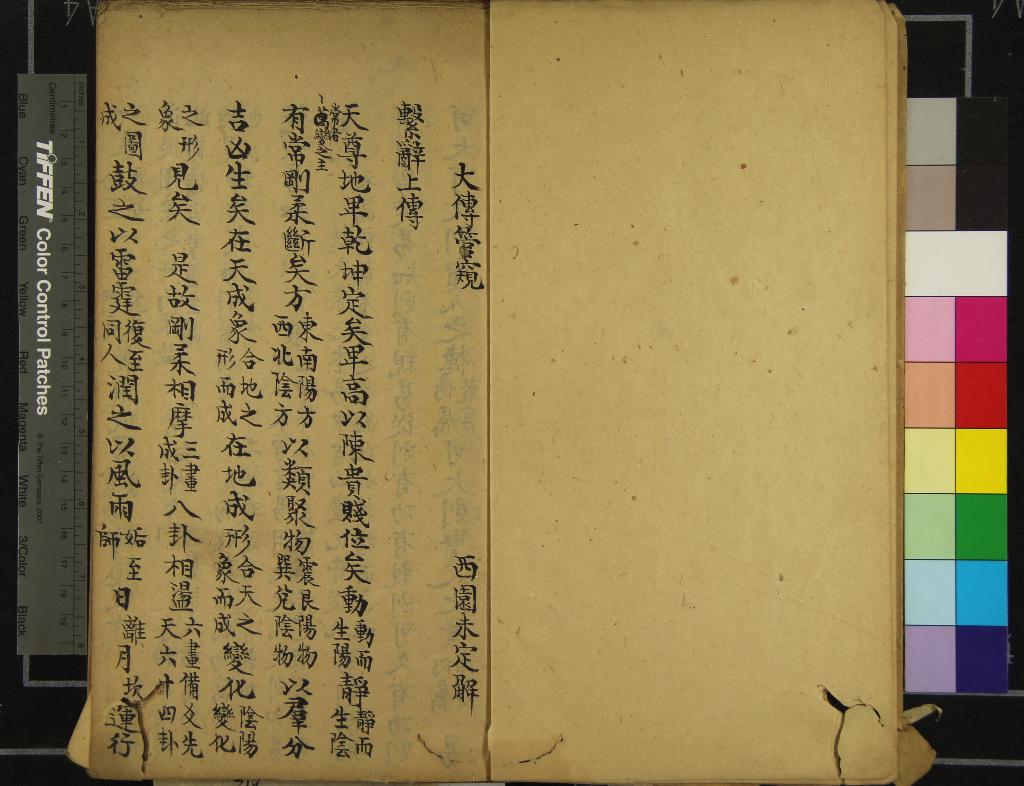 大傳管窺 西園未定觧
繫辭上傳
天尊地卑乾坤定矣卑高以陳貴賤位矣動動而生陽靜靜而生陰
有常常者萬變之主剛柔斷矣方東南陽方西北陰方以類聚物震艮陽物巽兌陰物以羣分
吉凶生矣在天成象合地之形而成在地成形合天之象而成變化陰陽變化
之形象見矣 是故剛柔相摩三畫成卦八卦相盪六畫備爻先天六十四卦
之圖成鼓之以雷霆復至同人潤之以風雨姤至師日離月坎運行
Inches
Centimetres
TIFFEN Color Control Patches
© The Tiffen Company, 2007
Blue Cyan Green Yellow Red Magenta White 3/Color Black